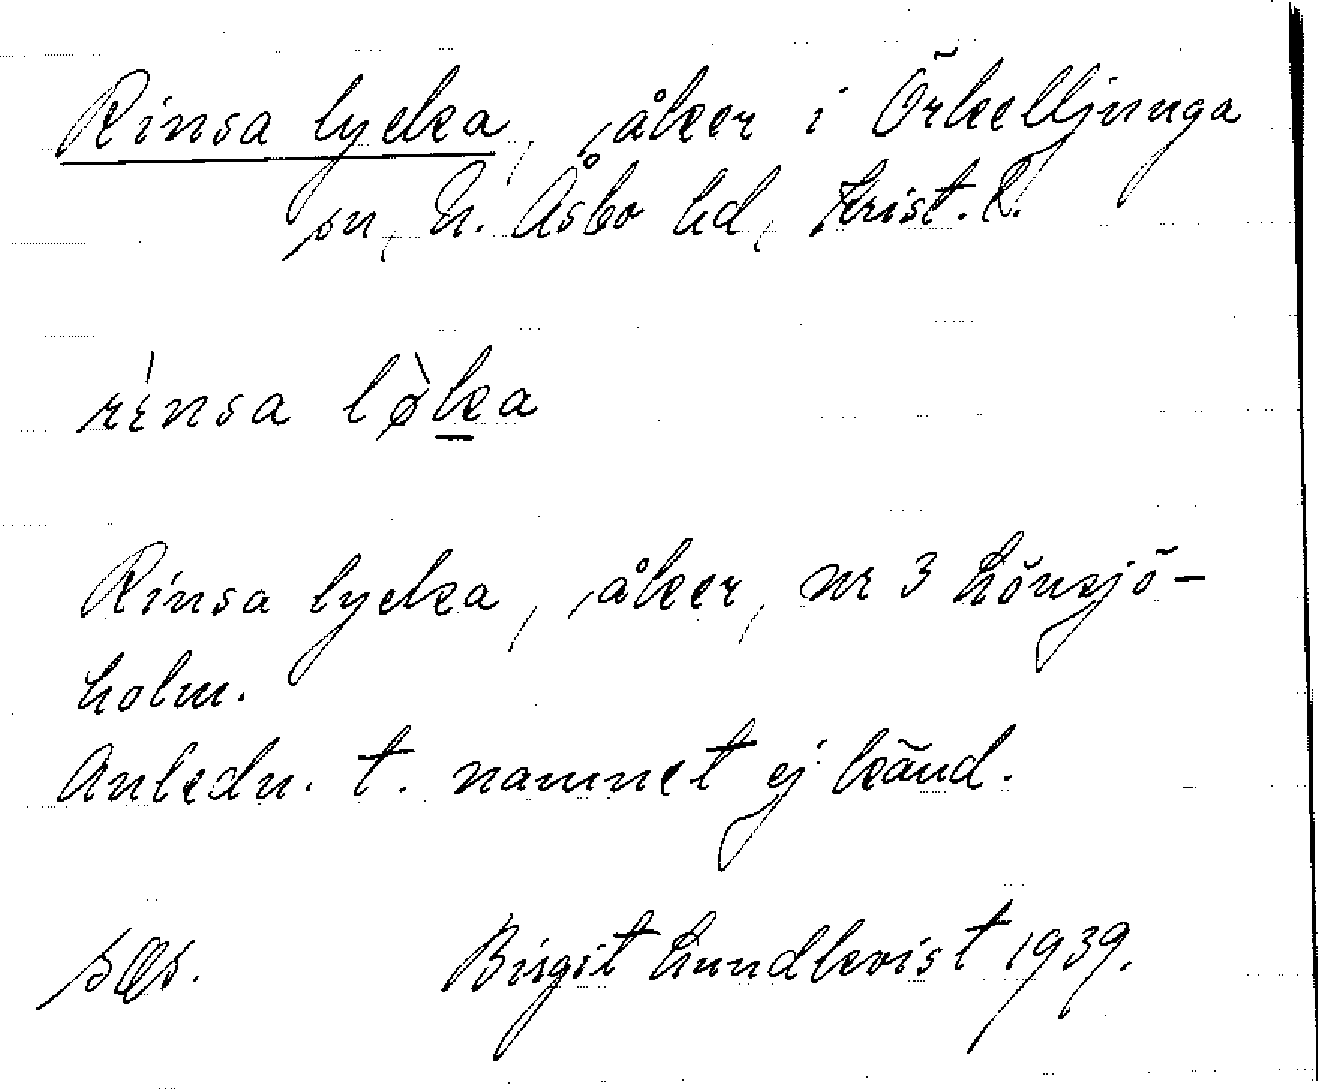 Rinsa lycka, åker i Örkelljunga
sn, N. Åsbo hd, Krist. L.
rinsa lø̀ka
Rinsa lycka, åker, nr 3 Lönsjö-
holm.
Anledn. t. namnet ej känd.
Birgit Lundkvist 1939.